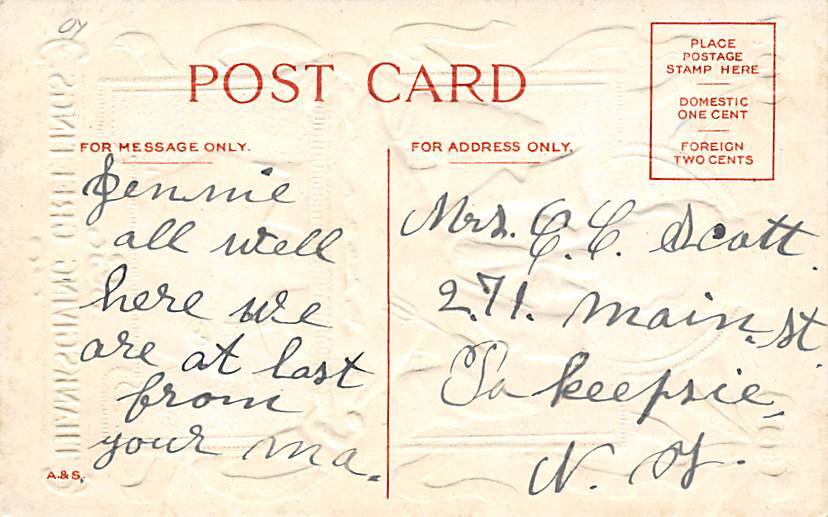 07
POST CARD
PLACE
POSTAGE
STAMP HERE
DOMESTIC
ONE CENT
FOREIGN
TWO CENTS
FOR MESSAGE ONLY.
Jennie
all well
here we
are at last
from
your ma.
FOR ADDRESS ONLY.
Mrs. C. C. Scott.
271. Main. st
Po keepsie,
N. Y.
THANKSGIVING GREETINGS
A.& S.